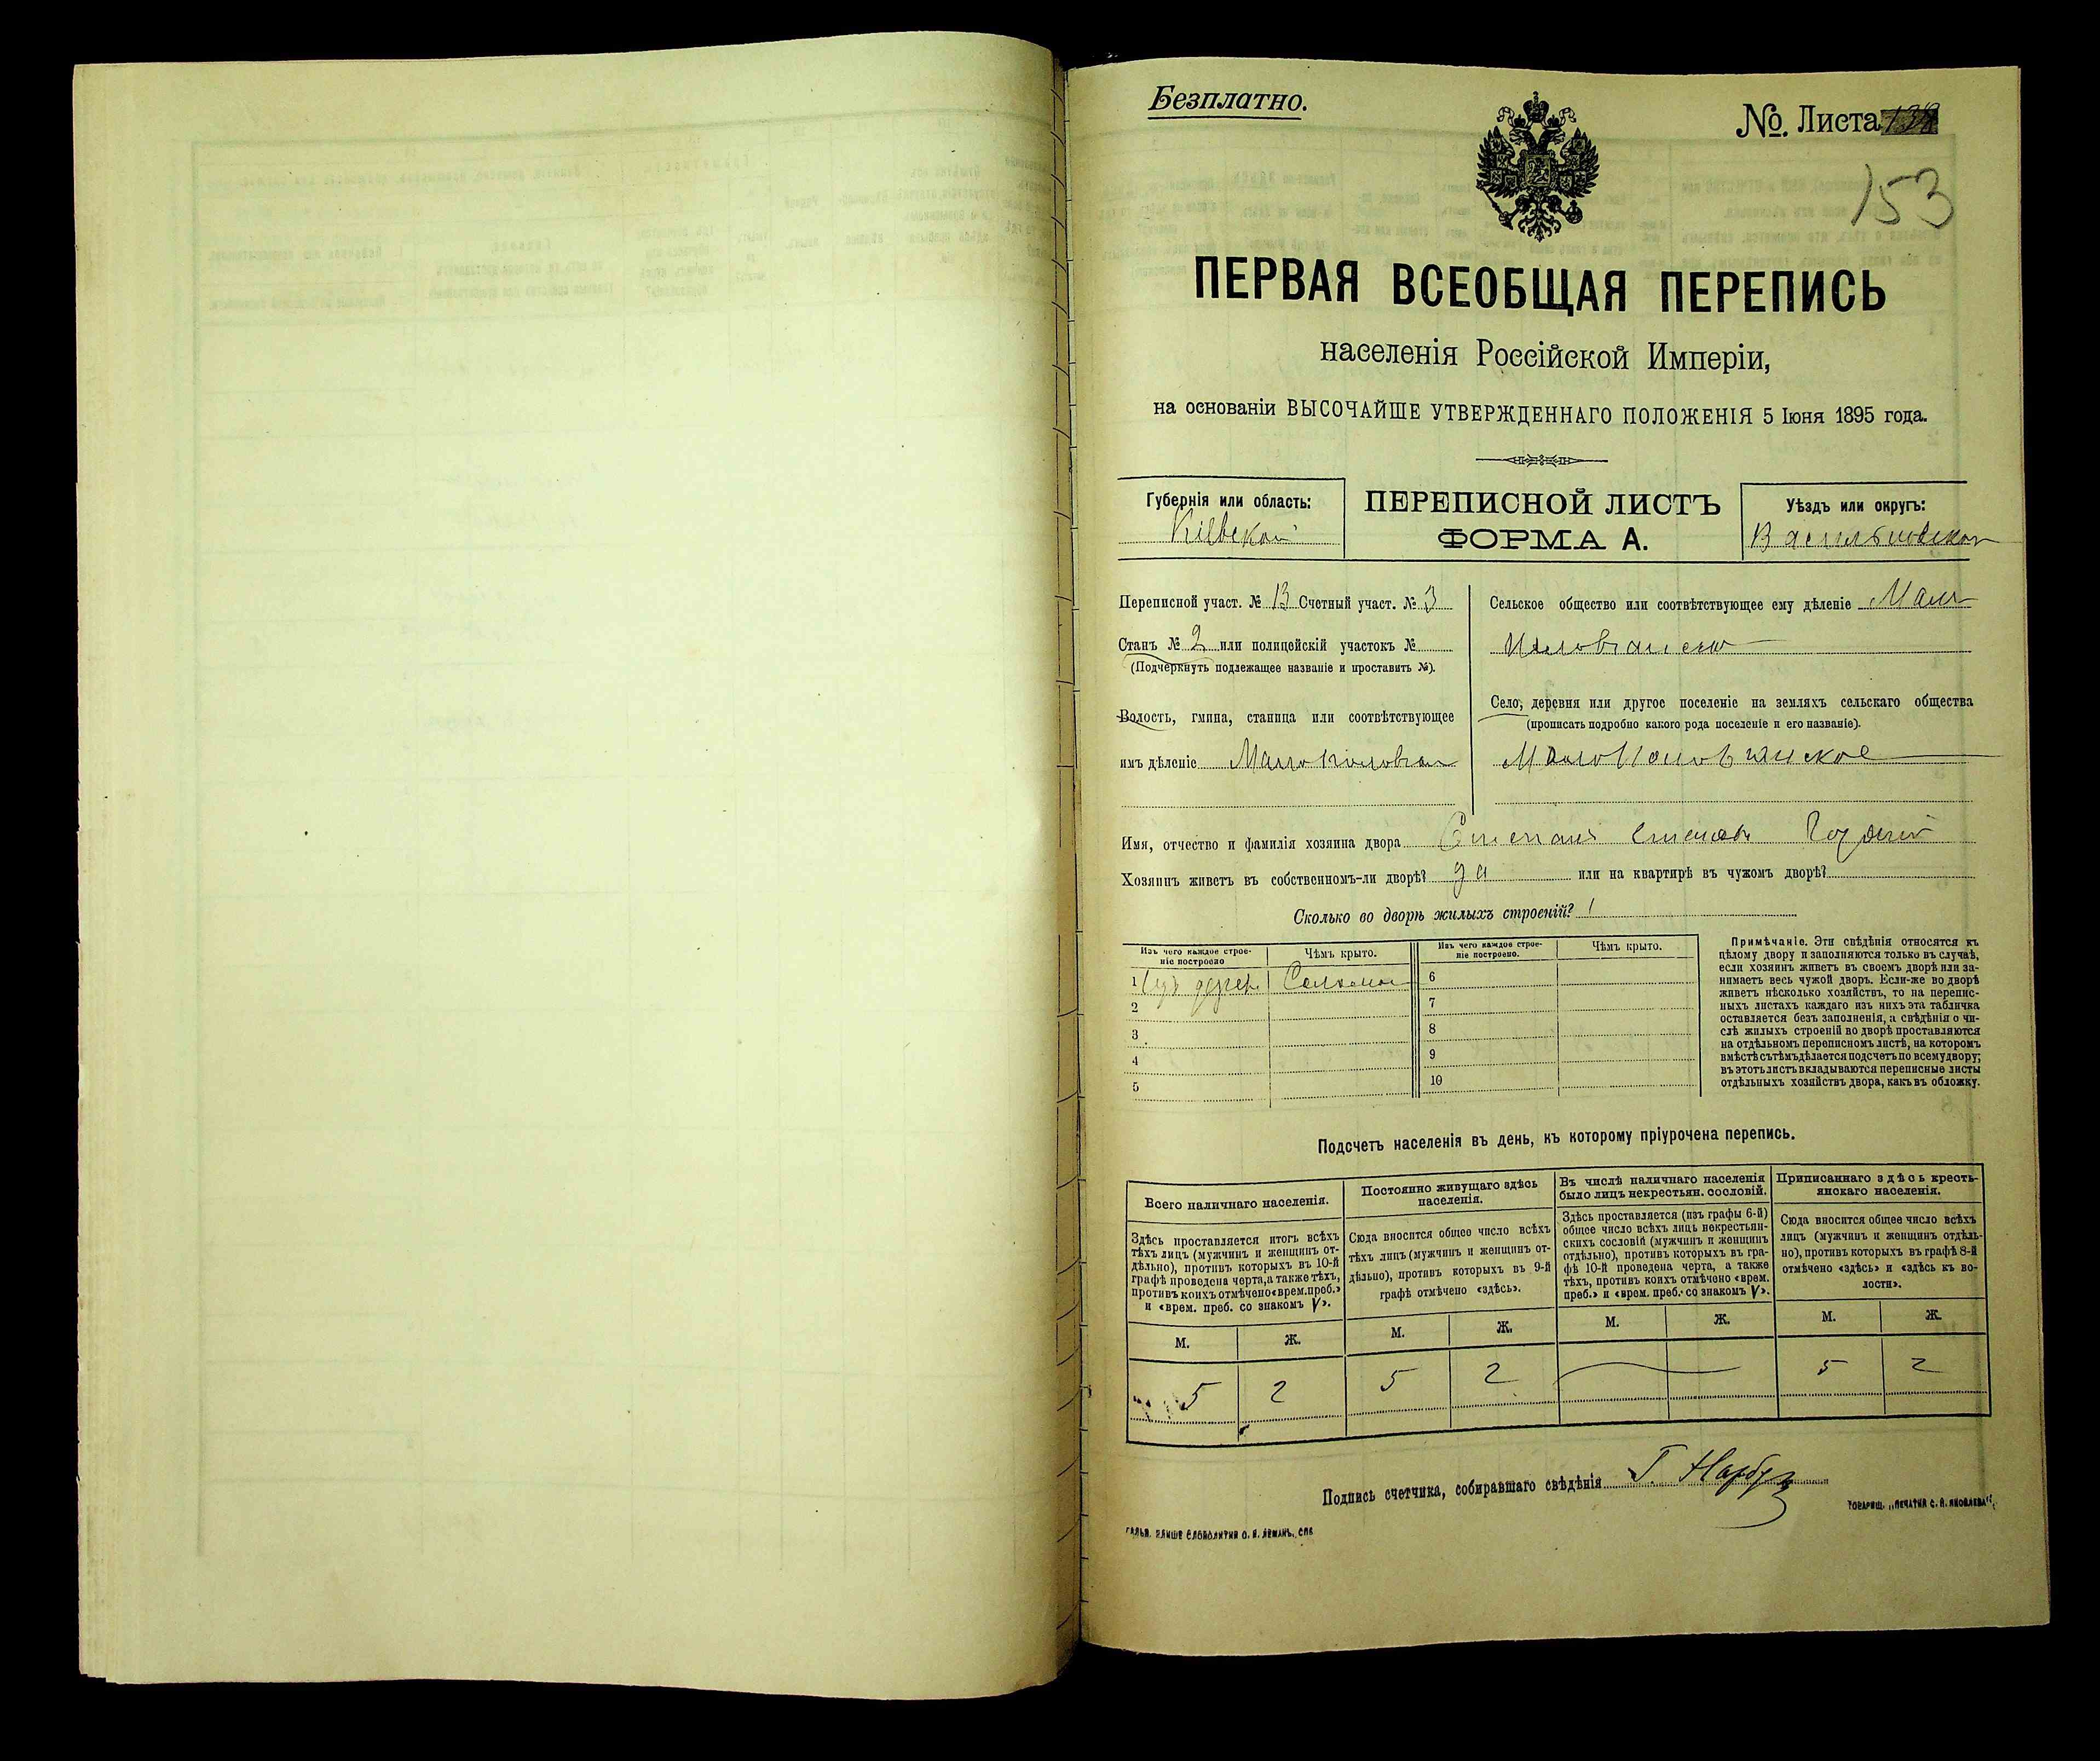 Безплатно.
№. Листа
153
ПЕРВАЯ ВСЕОБЩАЯ ПЕРЕПИСЬ
населенія Россійской Имперіи,
на основаніи ВЫСОЧАЙШЕ УТВЕРЖДЕННАГО ПОЛОЖЕНІЯ 5 Іюня 1895 года.
Губернія или область:
Кіевской
ПЕРЕПИСНОЙ ЛИСТЪ
ФОРМА А.
Уѣздъ или округъ:
Васильковской
Переписной участ. № 13 Счетный участ. № 3
Станъ № 2 или полицейскій участокъ №
(Подчеркнуть подлежащее названіе и проставить №).
Волость, гмина, станица или соотвѣтствующее
имъ дѣленіе
Сельское общество или соотвѣтствующее ему дѣленіе Мало
Село, деревня или другое поселеніе на земляхъ сельскаго общества
(прописать подробно какого рода поселеніе и его названіе).
Имя, отчество и фамилія хозяина двора Степанъ
Хозяинъ живетъ въ собственномъ-ли дворѣ? да или на квартирѣ въ чужомъ дворѣ?
Сколько во дворѣ жилыхъ строеній? 1
Изъ чего каждое строе-
ніе построено
Чѣмъ крыто.
Изъ чего каждое строе-
ніе построено.
Чѣмъ крыто.
1 изъ дерев. Соломой 6
2 7
3 8
4 9
5 10
Примѣчаніе. Эти свѣдѣнія относятся къ
цѣлому двору и заполняются только въ случаѣ,
если хозяинъ живетъ въ своемъ дворѣ или за-
нимаетъ весь чужой дворъ. Если-же во дворѣ
живетъ нѣсколько хозяйствъ, то на перепис-
ныхъ листахъ каждаго изъ нихъ эта табличка
оставляется безъ заполненія, а свѣдѣнія о чи-
слѣ жилыхъ строеній во дворѣ проставляются
на отдѣльномъ переписномъ листѣ, на которомъ
вмѣстѣ съ тѣмъ дѣлается подсчетъ по всему двору;
въ этотъ листъ вкладываются переписные листы
отдѣльныхъ хозяйствъ двора, какъ въ обложку.
Подсчетъ населенія въ день, къ которому пріурочена перепись.
Всего наличнаго населенія.
Здѣсь проставляется итогъ всѣхъ
тѣхъ лицъ (мужчинъ и женщинъ от-
дѣльно), противъ которыхъ въ 10-й
графѣ проведена черта, а также тѣхъ,
противъ коихъ отмѣчено «врем. преб.»
и «врем. преб. со знакомъ V».
Постоянно живущаго здѣсь
населенія.
Сюда вносится общее число всѣхъ
тѣхъ лицъ (мужчинъ и женщинъ от-
дѣльно), противъ которыхъ въ 9-й
графѣ отмѣчено «здѣсь».
Въ числѣ наличнаго населенія
было лицъ некрестьян. сословій.
Здѣсь проставляется (изъ графы 6-й)
общее число всѣхъ лицъ некрестьян-
скихъ сословій (мужчинъ и женщинъ
отдѣльно), противъ которыхъ въ гра-
фѣ 10-й проведена черта, а также
тѣхъ, противъ коихъ отмѣчено «врем.
преб.» и «врем. преб. со знакомъ V».
Приписаннаго здѣсь кресть-
янскаго населенія.
Сюда вносится общее число всѣхъ
лицъ (мужчинъ и женщинъ отдѣль-
но), противъ которыхъ въ графѣ 8-й
отмѣчено «здѣсь» и «здѣсь къ во-
лости».
М. Ж. М. Ж. М. Ж. М. Ж.
5 2 5 2 5 2
Подпись счетчика, собиравшаго свѣдѣнія
ТОВАРИЩ. „ПЕЧАТНЯ С. П. ЯКОВЛЕВА".
ГАЛЬВ. КЛИШЕ СЛОВОЛИТНИ О. И. ЛЕМАНЪ, СПБ